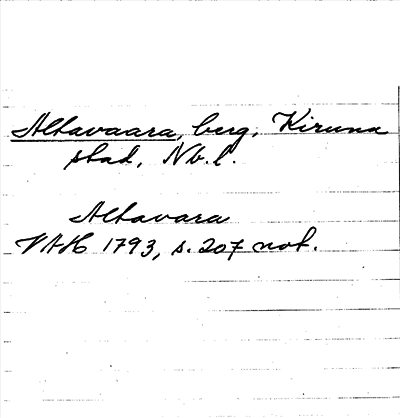 Altavaara, berg, Kiruna
stad, Nb.l.
Altavara
VAH 1793, s. 207 not.